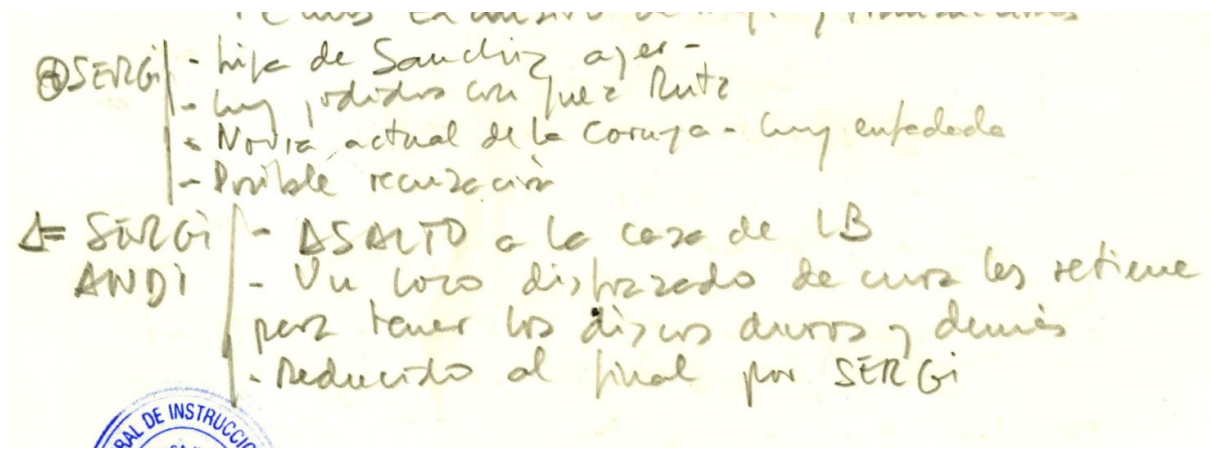 ⊕ SERGi - hija de Sanchiz ayer -
- muy jodidos con juez Rutz
- Novia actual de la Coruya - muy enfadada
- Posible recusación
Δ= SERGi - ASALTO a la casa de LB
ANDI - Un loco disfrazado de cura les retiene
para tener los discos duros y demás
- Reducido al final por SERGi
DE INSTRUCCIO